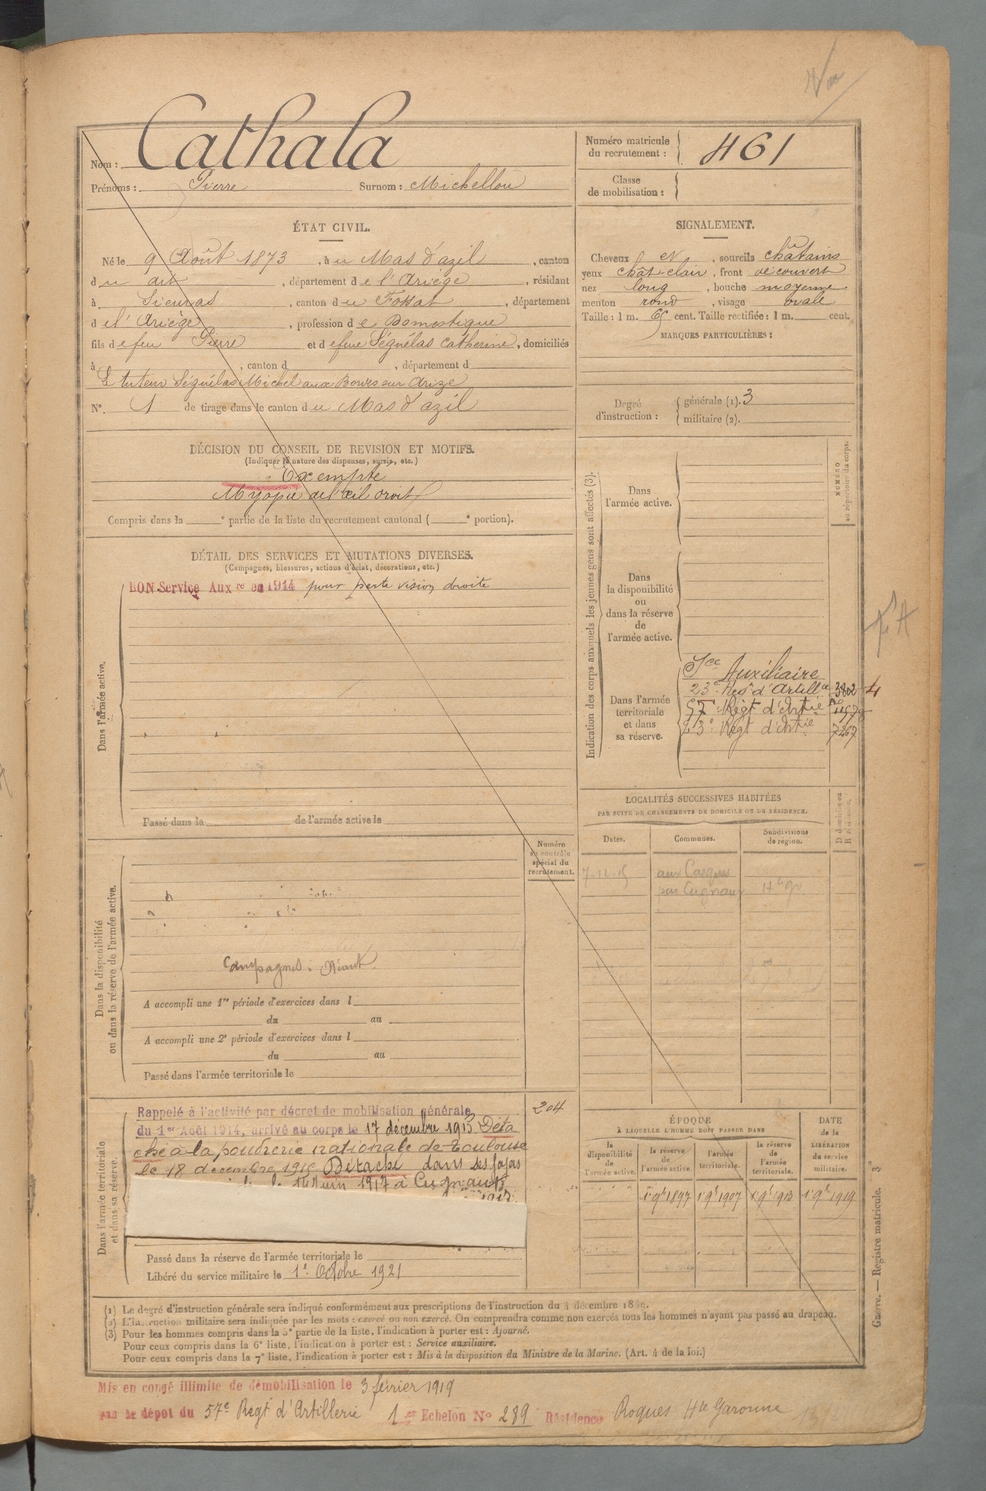 Nom : Cathala
Prénoms : Pierre Surnom : Michellou
Numéro matricule du recrutement : 461
Classe de mobilisation :
ÉTAT CIVIL.
Né le 9 Août 1873, à u Mas d'azil, canton
d u dit, département d e l'Ariège, résidant
à Sieuras, canton d u Fossat, département
d e l'Ariège, profession d e Domestique
fils d e feu Pierre et d efeue Séguélas Catherine, domiciliés
à , canton d , département d
Le tuteur Séguélas Michel aux Bordes sur Arize
N°. 1 de tirage dans le canton d u Mas d'azil
SIGNALEMENT.
Cheveux et, sourcils châtains
yeux chât-clair, front découvert
nez long, bouche moyenne
menton rond, visage ovale
Taille : 1 m. 65 cent. Taille rectifiée : 1 m. cent.
MARQUES PARTICULIÈRES :
Degré d'instruction : générale (1). 3
militaire (2).
DÉCISION DU CONSEIL DE REVISION ET MOTIFS.
(Indiquer la nature des dispenses, sursis, etc.)
Exempté
Myopie de l'œil droit
Compris dans la e partie de la liste du recrutement cantonal ( e portion).
DÉTAIL DES SERVICES ET MUTATIONS DIVERSES.
(Campagnes, blessures, actions d'éclat, décorations, etc.)
BON Service Aux re en 1914 pour perte vision droite
Dans l'armée active.
Passé dans la de l'armée active le
Indication des corps auxquels les jeunes gens sont affectés (3).
NUMÉRO au répertoire du corps.
Dans l'armée active.
Dans la disponibilité ou dans la réserve de l'armée active.
Dans l'armée territoriale et dans sa réserve.
Sce Auxiliaire
23e Regt d'Artill 3802
57e Régt d'Artie
23e Regt d'Artie 7267
LOCALITÉS SUCCESSIVES HABITÉES
PAR SUITE DE CHANGEMENTS DE DOMICILE OU DE RÉSIDENCE.
Dates. Communes. Subdivisions de région.
D domicile ou R résidence.
par Cugnaux
Numéro au contrôle spécial du recrutement.
Dans la disponibilité ou dans la réserve de l'armée active.
Campagnes : Néant
A accompli une 1re période d'exercices dans l
du au
A accompli une 2e période d'exercices dans l
du au
Passé dans l'armée territoriale le
Dans l'armée territoriale et dans sa réserve.
Rappelé à l'activité par décret de mobilisation générale
du 1er Août 1914, arrivé au corps le 17 décembre 1915 Déta
ché à la poudrerie nationale de Toulouse
le 18 décembre 1915 Détaché dans ses foyers
14 Juin 1917 à Cugnaux
204
Passé dans la réserve de l'armée territoriale le
Libéré du service militaire le 1er Octobre 1921
ÉPOQUE
À LAQUELLE L'HOMME DOIT PASSER DANS
la disponibilité de l'armée active. la réserve de l'armée active. l'armée territoriale. la réserve de l'armée territoriale.
DATE de la LIBÉRATION du service militaire.
1 9bre 1897 1 9bre 1907 1 9bre 1913 1 9bre 1919
(1) Le degré d'instruction générale sera indiqué conformément aux prescriptions de l'instruction du 4 décembre 1889.
(2) L'instruction militaire sera indiquée par les mots : exercé ou non exercé. On comprendra comme non exercés tous les hommes n'ayant pas passé au drapeau.
(3) Pour les hommes compris dans la 5e partie de la liste, l'indication à porter est : Ajourné.
Pour ceux compris dans la 6e liste, l'indication à porter est : Service auxiliaire.
Pour ceux compris dans la 7e liste, l'indication à porter est : Mis à la disposition du Ministre de la Marine. (Art. 4 de la loi.)
Guerre. — Registre matricule. 3e
Mis en congé illimité de démobilisation le 3 février 1919
par le dépôt du 57e Regt d'Artillerie 1er Echelon N° 289 Résidence Roques Hte Garonne